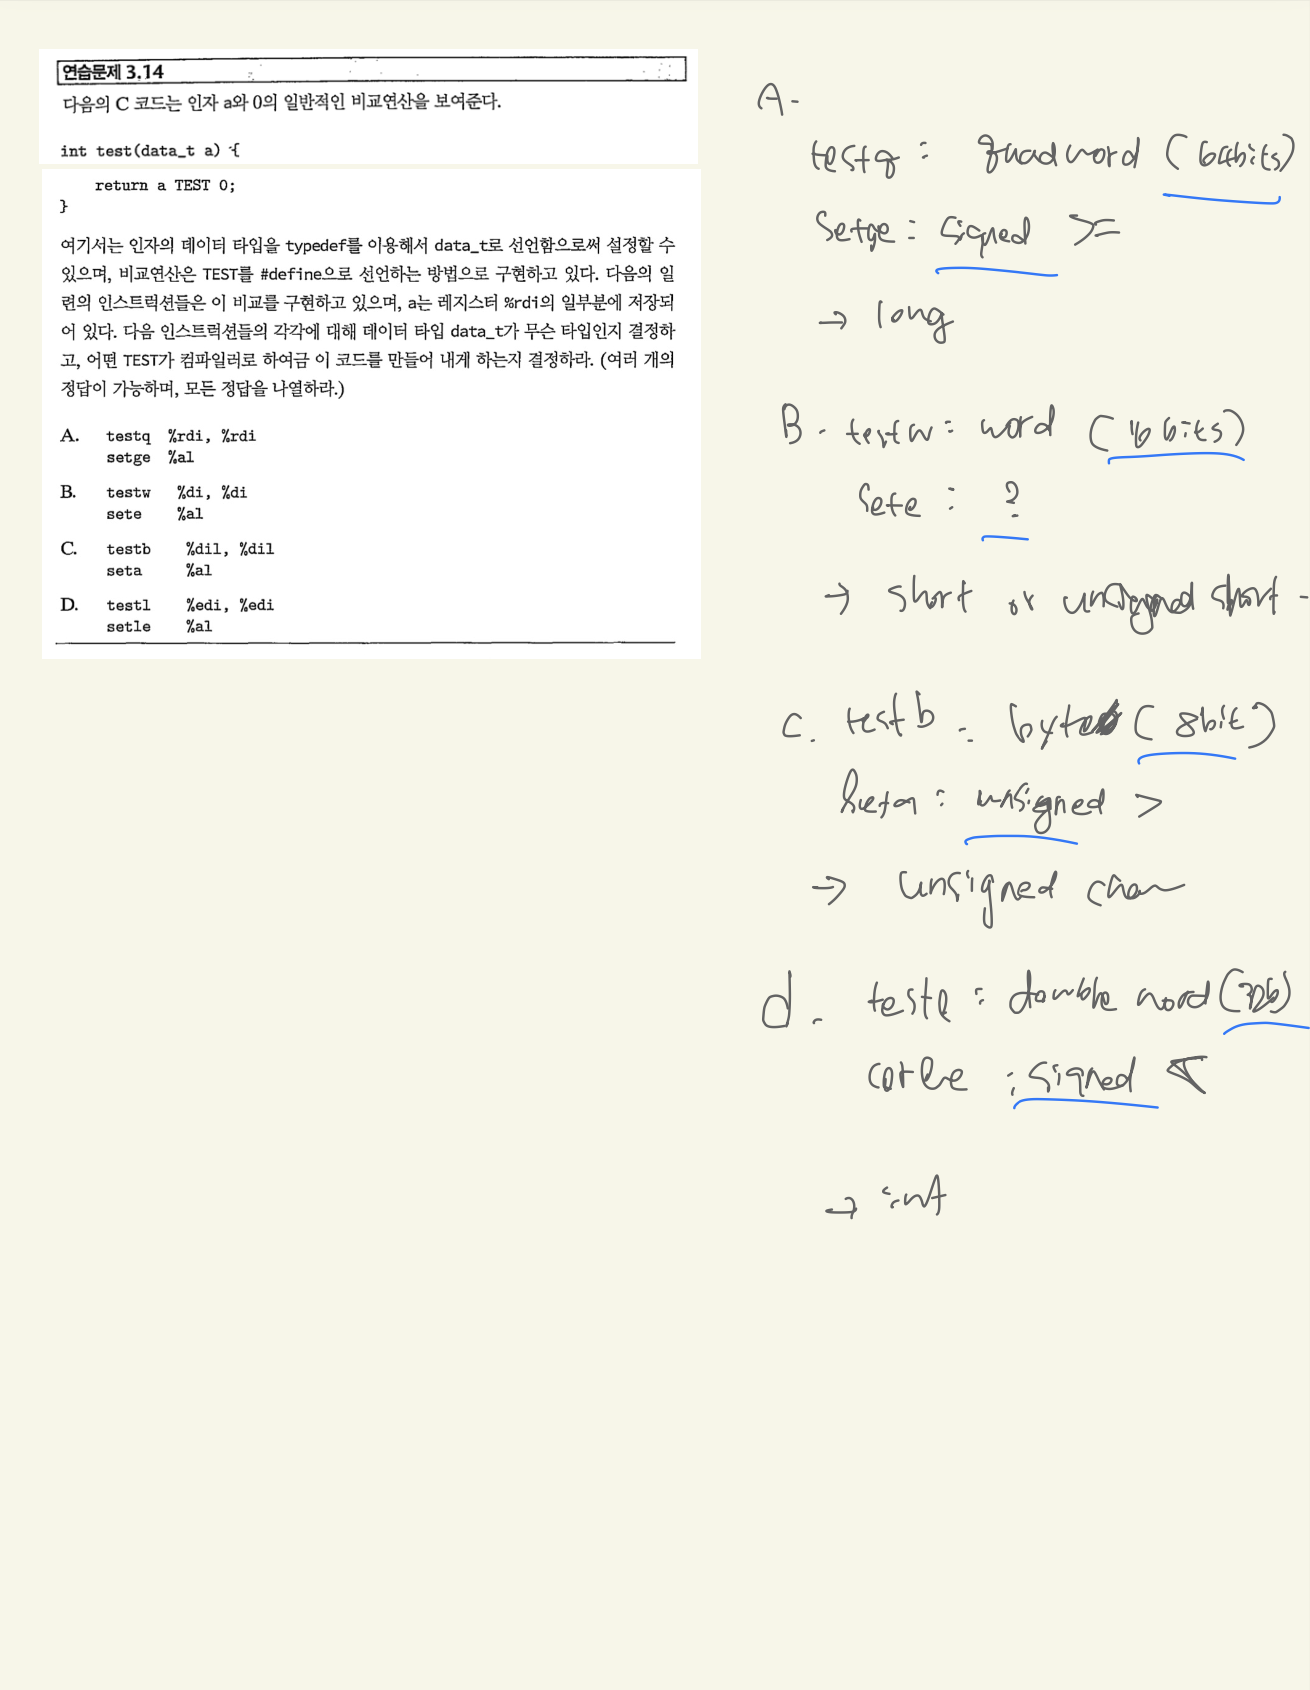 연습문제 3.14
다음의 C 코드는 인자 a와 0의 일반적인 비교연산을 보여준다.
int test(data_t a) {
return a TEST 0;
}
여기서는 인자의 데이터 타입을 typedef를 이용해서 data_t로 선언함으로써 설정할 수
있으며, 비교연산은 TEST를 #define으로 선언하는 방법으로 구현하고 있다. 다음의 일
련의 인스트럭션들은 이 비교를 구현하고 있으며, a는 레지스터 %rdi의 일부분에 저장되
어 있다. 다음 인스트럭션들의 각각에 대해 데이터 타입 data_t가 무슨 타입인지 결정하
고, 어떤 TEST가 컴파일러로 하여금 이 코드를 만들어 내게 하는지 결정하라. (여러 개의
정답이 가능하며, 모든 정답을 나열하라.)
A. testq %rdi, %rdi
setge %al
B. testw %di, %di
sete %al
C. testb %dil, %dil
seta %al
D. testl %edi, %edi
setle %al
A.
testq : quad word (64bits)
Setge : signed >=
→ long
B. testw : word (16 bits)
Sete : ?
→ short or unsigned short
C. testb : byte (8bit)
seta : unsigned >
→ unsigned char
d. testl : double word (32b)
: signed
→ int